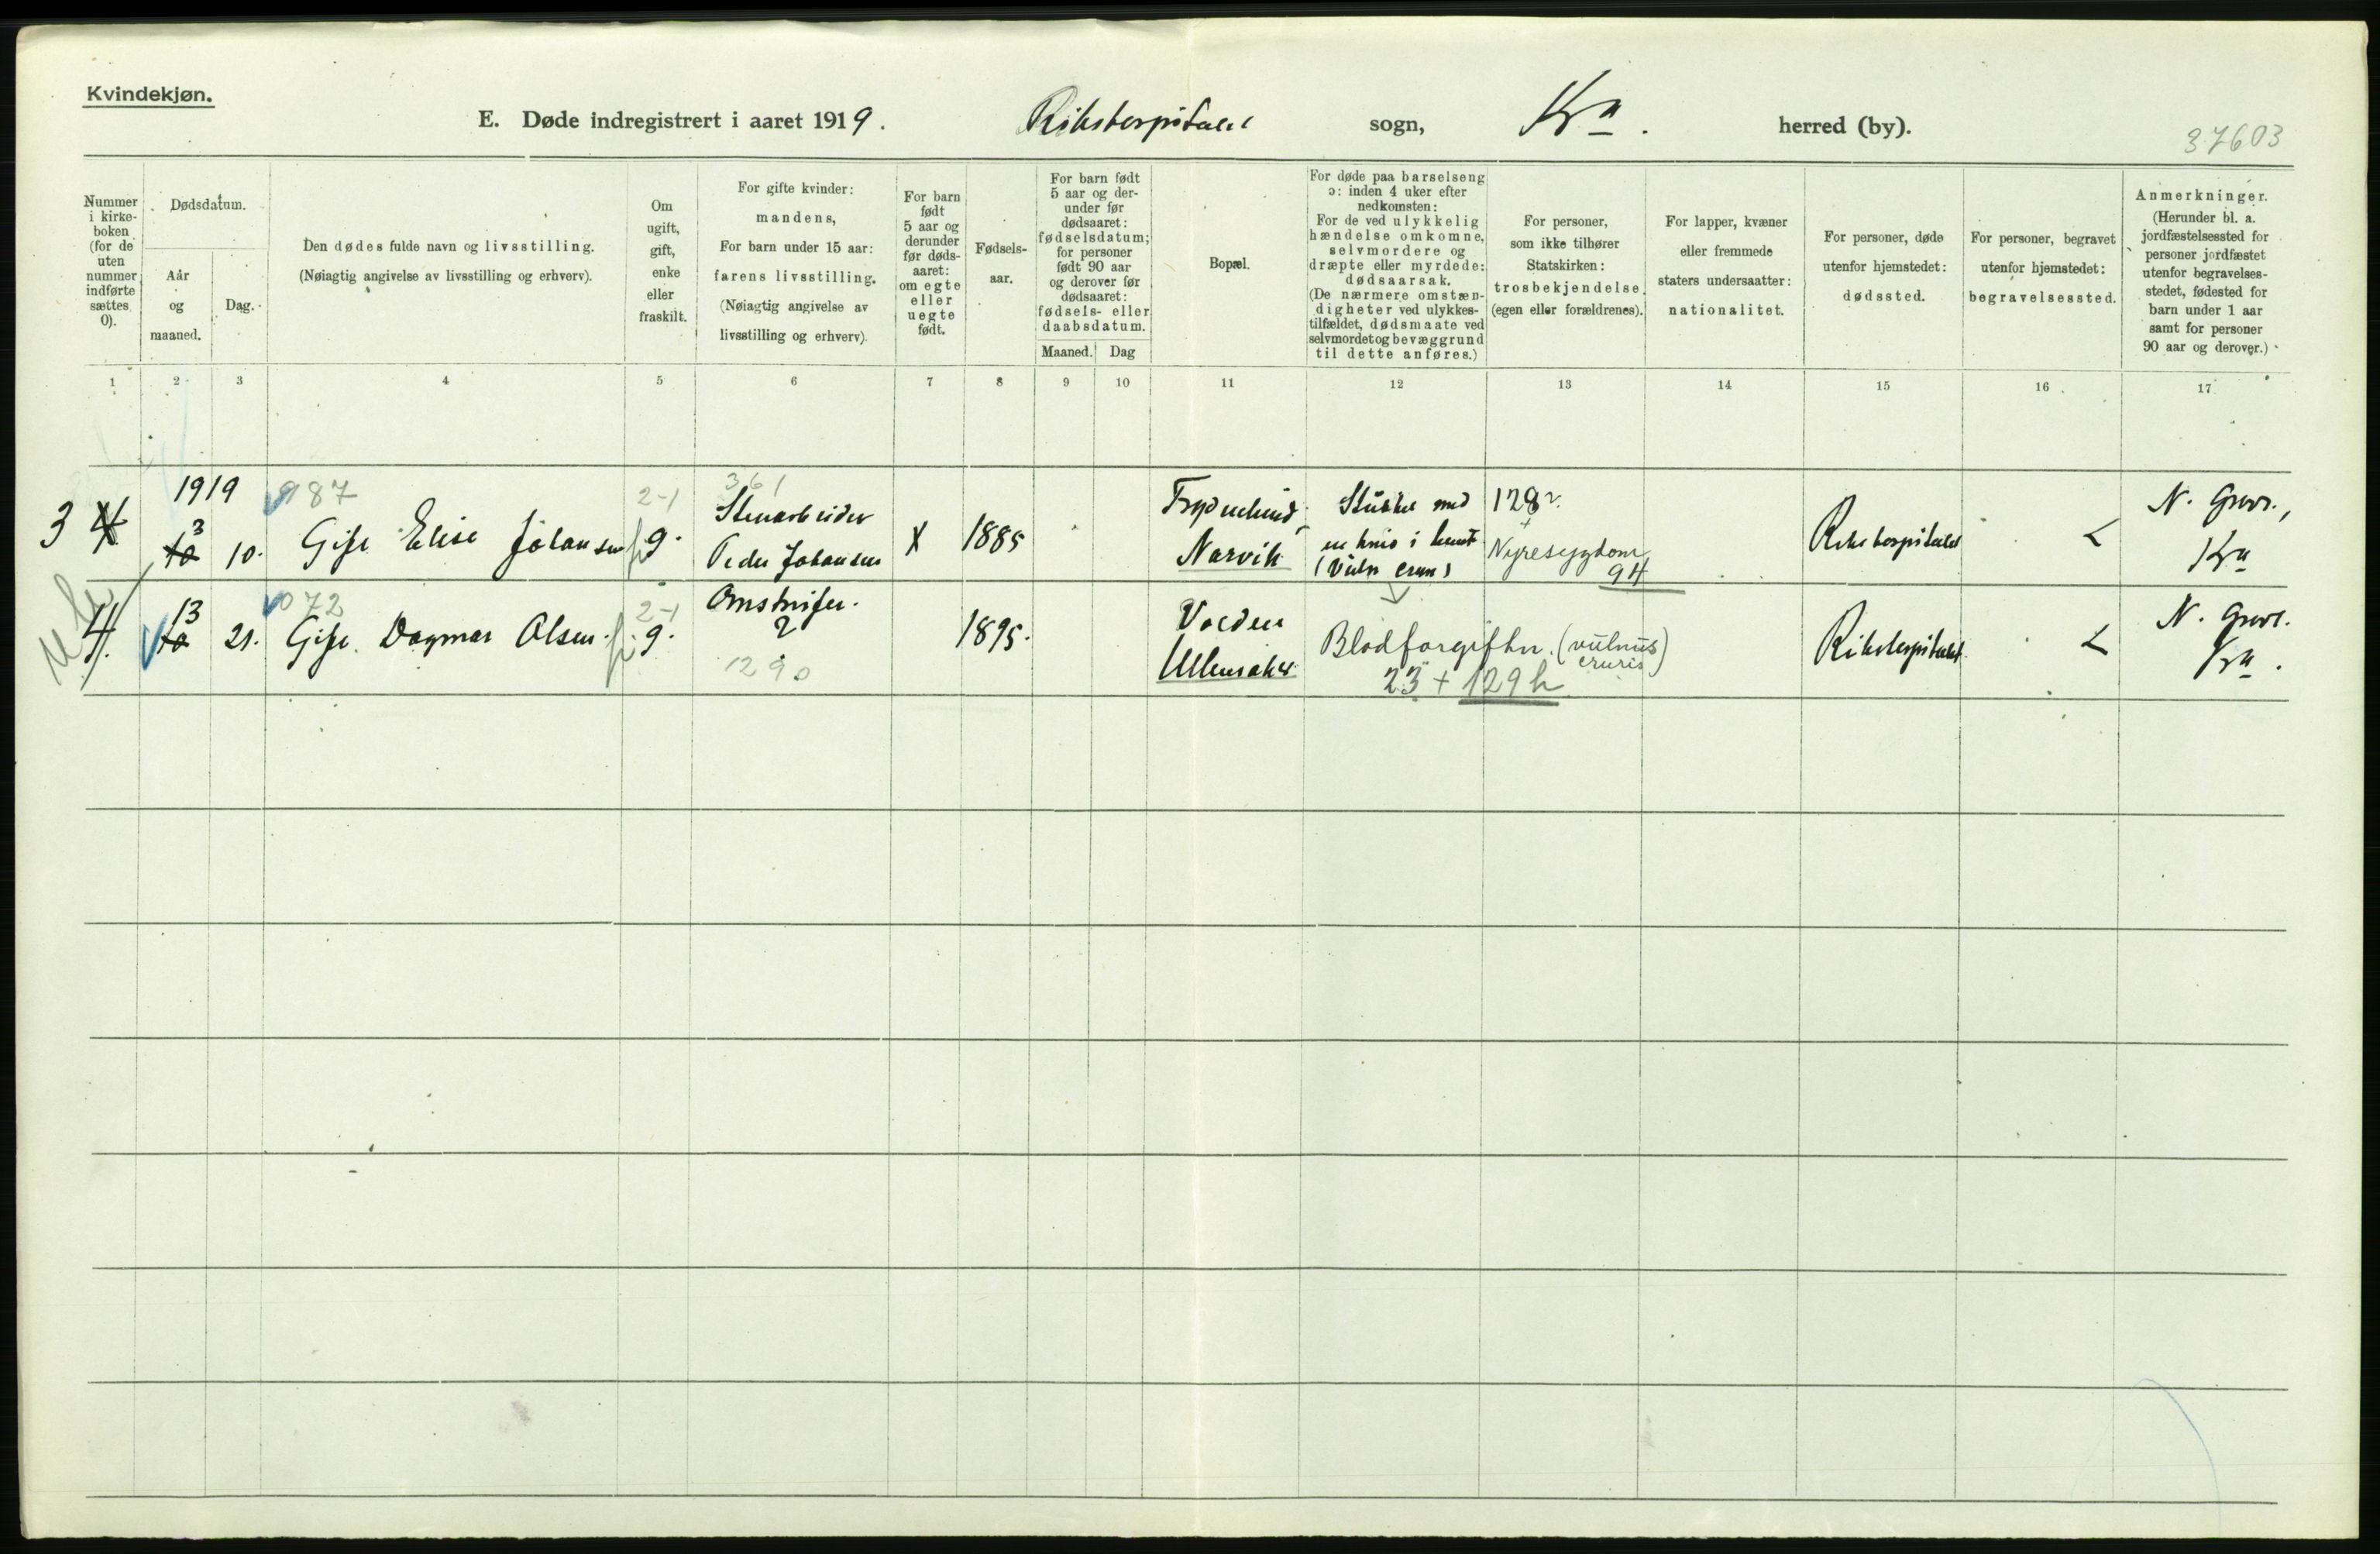 Kvindekjøn.
E. Døde indregistrert i aaret 1919. Rikshospitalet sogn, Kra. herred (by).
37603
Nummer i kirkeboken (for de uten nummer indførte sættes 0).
Dødsdatum.
Aar og maaned.
Dag.
Den dødes fulde navn og livsstilling.
(Nøiagtig angivelse av livsstilling og erhverv).
Om ugift, gift, enke eller fraskilt.
For gifte kvinder: mandens,
For barn under 15 aar: farens livsstilling.
(Nøiagtig angivelse av livsstilling og erhverv).
For barn født 5 aar og derunder før dødsaaret: om egte eller uegte født.
Fødselsaar.
For barn født 5 aar og derunder før dødsaaret: fødselsdatum; for personer født 90 aar og derover før dødsaaret: fødsels- eller daabsdatum.
Maaned. Dag
Bopæl.
For døde paa barselseng ɔ: inden 4 uker efter nedkomsten:
For de ved ulykkelig hændelse omkomne, selvmordere og dræpte eller myrdede: dødsaarsak.
(De nærmere omstændigheter ved ulykkestilfældet, dødsmaate ved selvmordet og bevæggrund til dette anføres.)
For personer, som ikke tilhører Statskirken: trosbekjendelse. (egen eller forældrenes).
For lapper, kvæner eller fremmede staters undersaatter: nationalitet.
For personer, døde utenfor hjemstedet: dødssted.
For personer, begravet utenfor hjemstedet: begravelsessted.
Anmerkninger.
(Herunder bl. a. jordfæstelsessted for personer jordfæstet utenfor begravelsesstedet, fødested for barn under 1 aar samt for personer 90 aar og derover.)
1 2 3 4 5 6 7 8 9 10 11 12 13 14 15 16 17
1919 987 2-1 361
3 4 3 10 10. Gift Elise Johansen g. Stenarbeider Peder Johansen X 1885
Narvik
Stukket med en kniv i
128
+
Nyresygdom
94
Rikshospitalet
N. Gravl., Kra
4. 13 10 21. 072 Gift Dagmar Olsen. 2-1 g.
?
1290
1895.
Ullensaker
Blodforgiftn. (vulnus cruris)
23 + 129 h
Rikshospitalet.
N. Gravl. Kra.